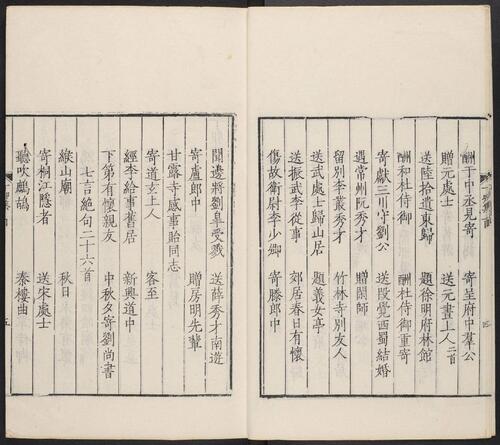 酬于中丞見寄　寄至府中羣公
贈元處士　送元晝上人二首
送陸拾遺東歸　題徐明府林館
酬和杜侍御　酬杜侍御重寄
寄獻三川守劉公　送段覺西蜀結婚
遇常州阮秀才　贈閑師
留別李叢秀才　竹林寺別友人
送武處士歸山居　題義女亭
送振武李從事　郊居春日有懷
傷故衛尉李少卿　寄滕郎中
聞邊將劉臯受戮　送薛秀才南遊
寄盧郎中　贈房明先輩
甘露寺感事貽同志
寄道玄上人　客至
經李給事舊居　新興道中
下第有懷親友　中秋夕寄劉尚書
七言絕句二十六首
緱山廟　秋日
寄桐江隱者　送宋處士
聽吹鷓鴣　秦樓曲
五